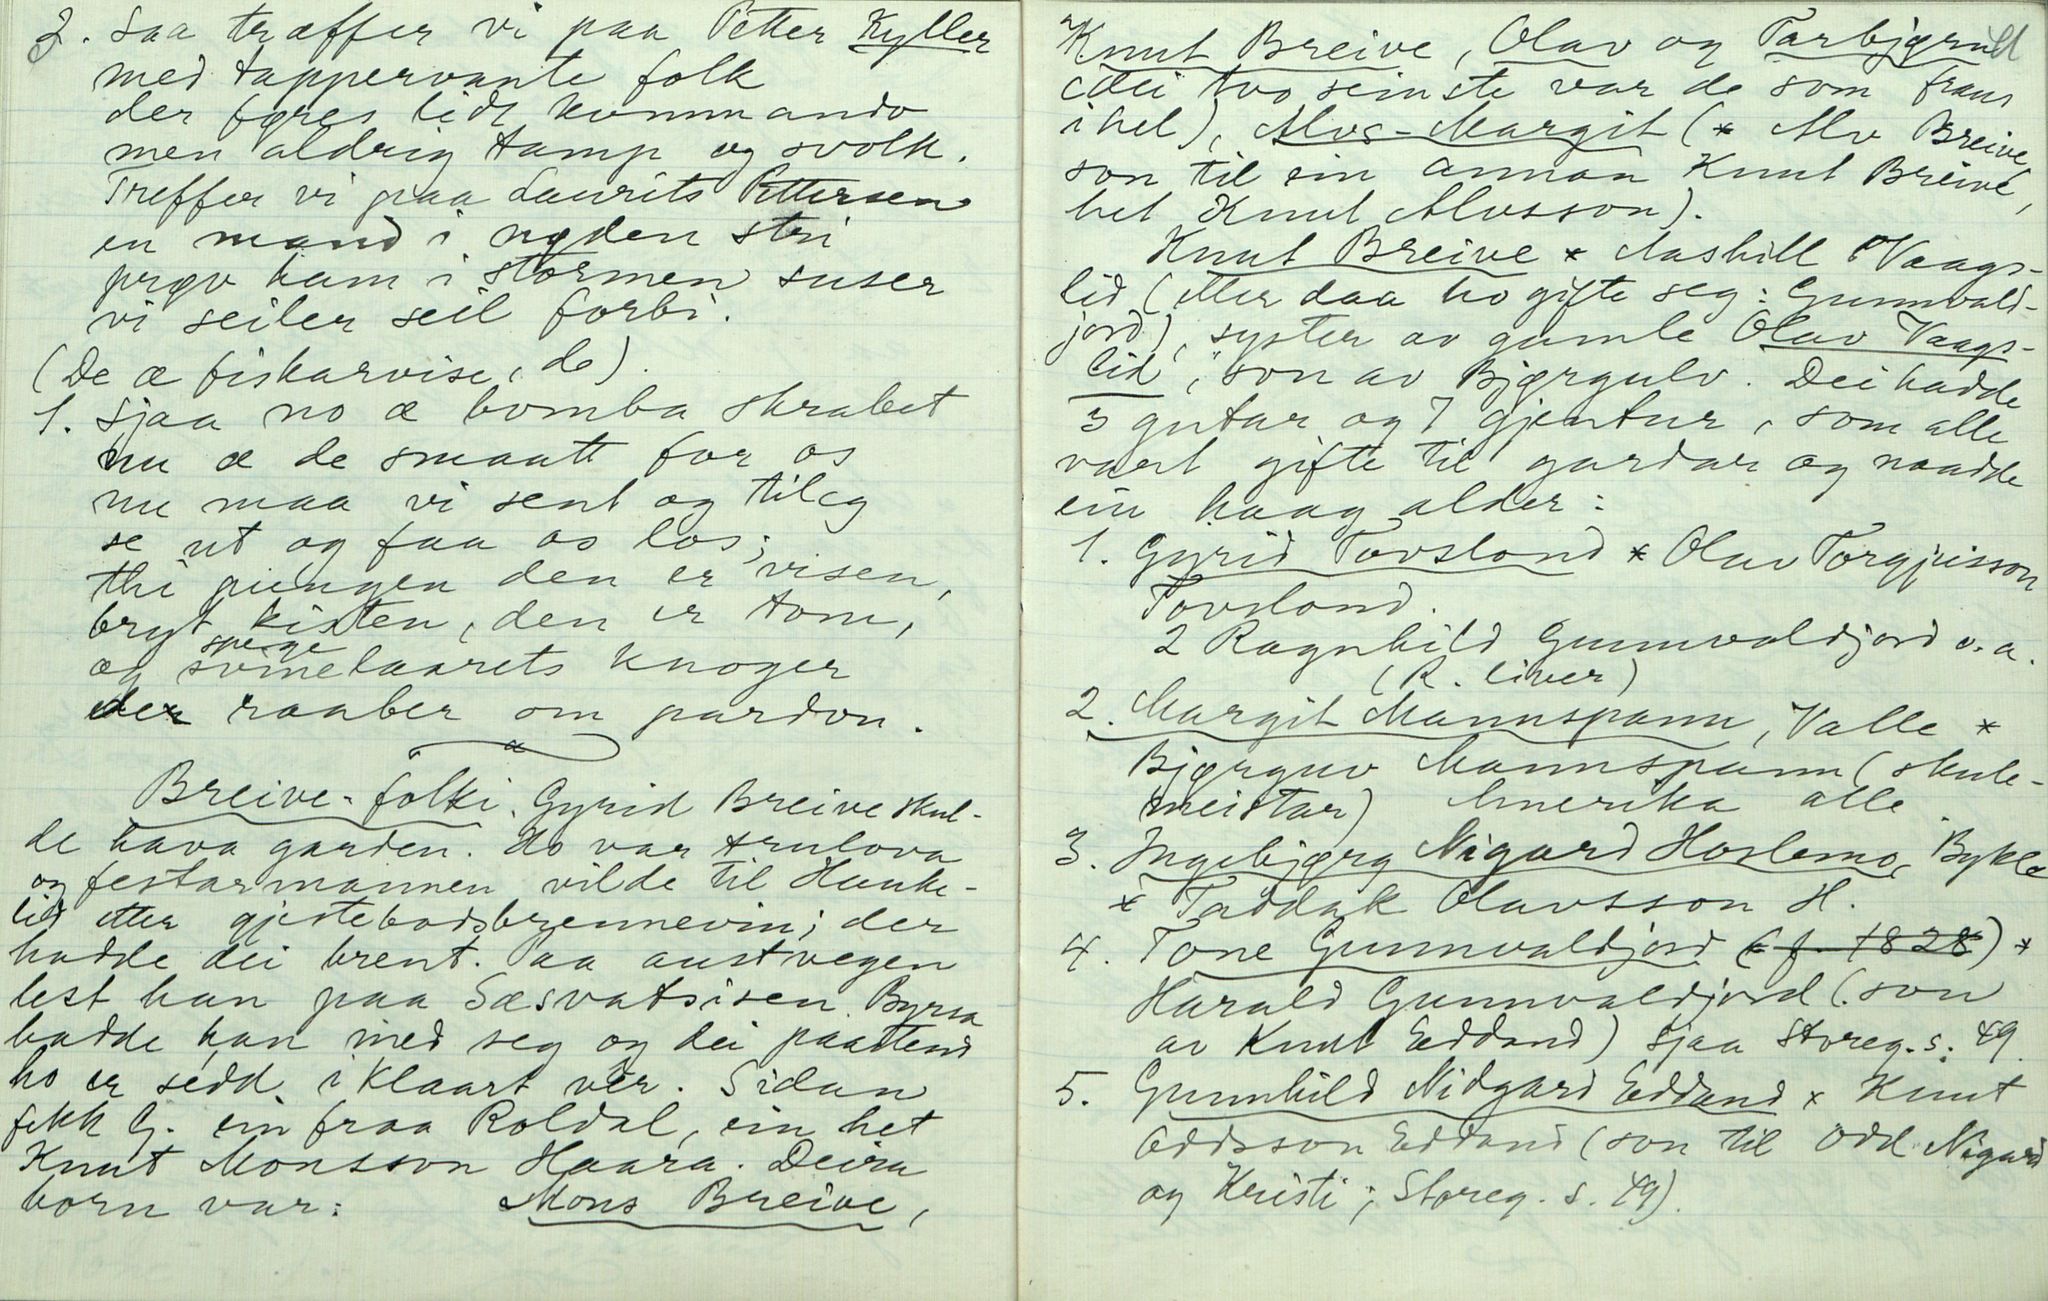 2. Saa træffer vi paa Petter Kyller
med tappervante folk
der føres lidt kommando
men aldrig tamp og svolk.
Treffer vi paa Laurits Pettersen
en mand i nøden stri
prøv ham i stormen suser
vi seiler seil forbi.
(De æ fiskarvise, de).
1. Sjaa no æ bomba skrabet
nu æ de smaatt for os
nu maa vi sent og tileg
se ut og faa os los;
thi pungen den er visen,
bryt kisten, den er tom,
spege
og svinelaarets knoger
der raaber om pardon.
Breive-folki. Gyrid Breive skul-
de hava garden. Ho var trulova
og festarmannen vilde til Hauke-
lid etter gjestebodsbrennevin; der
hadde dei brent. Aa austvegen
lest han paa Sæsvatsisen. Byrsa
hadde han med seg og dei paastend
ho er sedd i klaart ver. Sidan
fekk G. ein fraa Roldal, ein het
Knut Monsson Haara. Deira
born var: Mons Breive,
Knut Breive, Olav og Tarbjørn
(dei two seinste var de som fraus
ihel), Alvs-Margit (* Alv Breive,
son til ein annan Knut Breive,
het Knut Alvsson).
Knut Breive * Aashill Vaags-
lid (etter daa ho gifte seg: Gunnvald-
jord), syster av gamle Olav Vaags-
lid, son av Bjørgulv. Dei hadde
3 gutar og 7 gjentur, som alle
vart gifte til gardar og naadde
ein haag alder:
1. Gyrid Tovslond * Olav Torgjusson
Tovslond.
2 Ragnhild Gunnvaldjord o. a.
(R. liver)
2. Margit Mannspann, Valle *
Bjørguv Mannspann (skule-
meistar) Amerika alle
3. Ingebjørg Nigard Hoslemo, Bykle
* Taddak Olavsson H.
4. Tone Gunnvaldjord (f. 1828) *
Harald Gunnvaldjord (son
av Knut Eddand) sjaa Storeg. s. 49.
5. Gunnhild Nidgard Eddand x Knut
Oddsson Eddand (son til Odd Nigard
og Kristi; Storeg. s. 49).